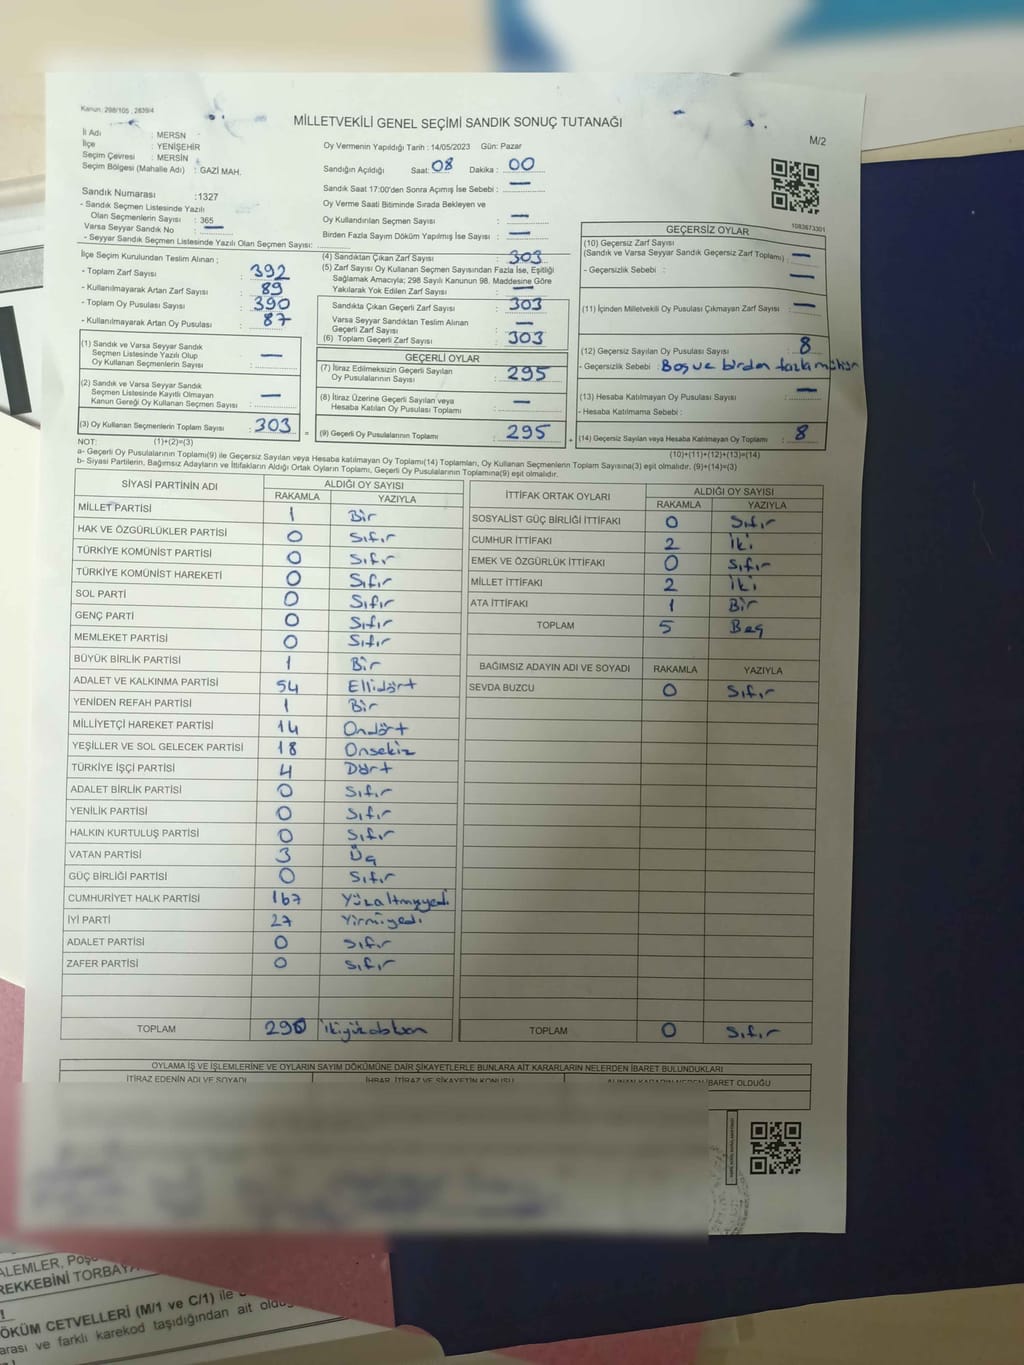 Kanun: 298/105 , 2839/4
MİLLETVEKİLİ GENEL SEÇİMİ SANDIK SONUÇ TUTANAĞI
M/2
İl Adı : MERSN
İlçe : YENİŞEHİR
Seçim Çevresi : MERSİN
Seçim Bölgesi (Mahalle Adı) : GAZİ MAH.
Sandık Numarası :1327
- Sandık Seçmen Listesinde Yazılı
Olan Seçmenlerin Sayısı : 365
Varsa Seyyar Sandık No : —
- Seyyar Sandık Seçmen Listesinde Yazılı Olan Seçmen Sayısı:
Oy Vermenin Yapıldığı Tarih : 14/05/2023 Gün: Pazar
Sandığın Açıldığı Saat: 08 Dakika : 00
Sandık Saat 17:00'den Sonra Açımış İse Sebebi : —
Oy Verme Saati Bitiminde Sırada Bekleyen ve
Oy Kullandırılan Seçmen Sayısı : —
Birden Fazla Sayım Döküm Yapılmış İse Sayısı : —
1083673301
İlçe Seçim Kurulundan Teslim Alınan ;
- Toplam Zarf Sayısı : 392
- Kullanılmayarak Artan Zarf Sayısı : 89
- Toplam Oy Pusulası Sayısı : 390
- Kullanılmayarak Artan Oy Pusulası : 87
(1) Sandık ve Varsa Seyyar Sandık
Seçmen Listesinde Yazılı Olup
Oy Kullanan Seçmenlerin Sayısı : —
(2) Sandık ve Varsa Seyyar Sandık
Seçmen Listesinde Kayıtlı Olmayan
Kanun Gereği Oy Kullanan Seçmen Sayısı : —
(3) Oy Kullanan Seçmenlerin Toplam Sayısı : 303
(4) Sandıktan Çıkan Zarf Sayısı : 303
(5) Zarf Sayısı Oy Kullanan Seçmen Sayısından Fazla İse, Eşitliği
Sağlamak Amacıyla; 298 Sayılı Kanunun 98. Maddesine Göre
Yakılarak Yok Edilen Zarf Sayısı : —
Sandıkta Çıkan Geçerli Zarf Sayısı : 303
Varsa Seyyar Sandıktan Teslim Alınan
Geçerli Zarf Sayısı : —
(6) Toplam Geçerli Zarf Sayısı : 303
GEÇERLİ OYLAR
(7) İtiraz Edilmeksizin Geçerli Sayılan
Oy Pusulalarının Sayısı : 295
(8) İtiraz Üzerine Geçerli Sayılan veya
Hesaba Katılan Oy Pusulası Toplamı : —
= (9) Geçerli Oy Pusulalarının Toplamı : 295
GEÇERSİZ OYLAR
(10) Geçersiz Zarf Sayısı
(Sandık ve Varsa Seyyar Sandık Geçersiz Zarf Toplamı) : —
- Geçersizlik Sebebi : —
(11) İçinden Milletvekili Oy Pusulası Çıkmayan Zarf Sayısı : —
(12) Geçersiz Sayılan Oy Pusulası Sayısı : 8
- Geçersizlik Sebebi : Boş ve birden fazla mühür
(13) Hesaba Katılmayan Oy Pusulası Sayısı : —
- Hesaba Katılmama Sebebi :
+ (14) Geçersiz Sayılan veya Hesaba Katılmayan Oy Toplamı : 8
NOT: (1)+(2)=(3)
(10)+(11)+(12)+(13)=(14)
a- Geçerli Oy Pusulalarının Toplamı(9) ile Geçersiz Sayılan veya Hesaba Katılmayan Oy Toplamı(14) Toplamları, Oy Kullanan Seçmenlerin Toplam Sayısına(3) eşit olmalıdır. (9)+(14)=(3)
b- Siyasi Partilerin, Bağımsız Adayların ve İttifakların Aldığı Ortak Oyların Toplamı, Geçerli Oy Pusulalarının Toplamına(9) eşit olmalıdır.
SİYASİ PARTİNİN ADI ALDIĞI OY SAYISI
RAKAMLA YAZIYLA
MİLLET PARTİSİ 1 Bir
HAK VE ÖZGÜRLÜKLER PARTİSİ 0 Sıfır
TÜRKİYE KOMÜNİST PARTİSİ 0 Sıfır
TÜRKİYE KOMÜNİST HAREKETİ 0 Sıfır
SOL PARTİ 0 Sıfır
GENÇ PARTİ 0 Sıfır
MEMLEKET PARTİSİ 0 Sıfır
BÜYÜK BİRLİK PARTİSİ 1 Bir
ADALET VE KALKINMA PARTİSİ 54 Ellidört
YENİDEN REFAH PARTİSİ 1 Bir
MİLLİYETÇİ HAREKET PARTİSİ 14 Ondört
YEŞİLLER VE SOL GELECEK PARTİSİ 18 Onsekiz
TÜRKİYE İŞÇİ PARTİSİ 4 Dört
ADALET BİRLİK PARTİSİ 0 Sıfır
YENİLİK PARTİSİ 0 Sıfır
HALKIN KURTULUŞ PARTİSİ 0 Sıfır
VATAN PARTİSİ 3 Üç
GÜÇ BİRLİĞİ PARTİSİ 0 Sıfır
CUMHURİYET HALK PARTİSİ 167 Yüzaltmışyedi
İYİ PARTİ 27 Yirmiyedi
ADALET PARTİSİ 0 Sıfır
ZAFER PARTİSİ 0 Sıfır
TOPLAM 290 ikiyüzdoksan
İTTİFAK ORTAK OYLARI ALDIĞI OY SAYISI
RAKAMLA YAZIYLA
SOSYALİST GÜÇ BİRLİĞİ İTTİFAKI 0 Sıfır
CUMHUR İTTİFAKI 2 İki
EMEK VE ÖZGÜRLÜK İTTİFAKI 0 Sıfır
MİLLET İTTİFAKI 2 İki
ATA İTTİFAKI 1 Bir
TOPLAM 5 Beş
BAĞIMSIZ ADAYIN ADI VE SOYADI RAKAMLA YAZIYLA
SEVDA BUZCU 0 Sıfır
TOPLAM 0 Sıfır
OYLAMA İŞ VE İŞLEMLERİNE VE OYLARIN SAYIM DÖKÜMÜNE DAİR ŞİKAYETLERLE BUNLARA AİT KARARLARIN NELERDEN İBARET BULUNDUKLARI
İTİRAZ EDENİN ADI VE SOYADI İHBAR, İTİRAZ VE ŞİKAYETİN KONUSU ALINAN KARARIN NEDEN İBARET OLDUĞU
ALEMLER,
REKKEBİNİ
ÖKÜM CETVELLERİ (M/1 ve C/1) ile
arası ve farklı karekod taşıdığından ait